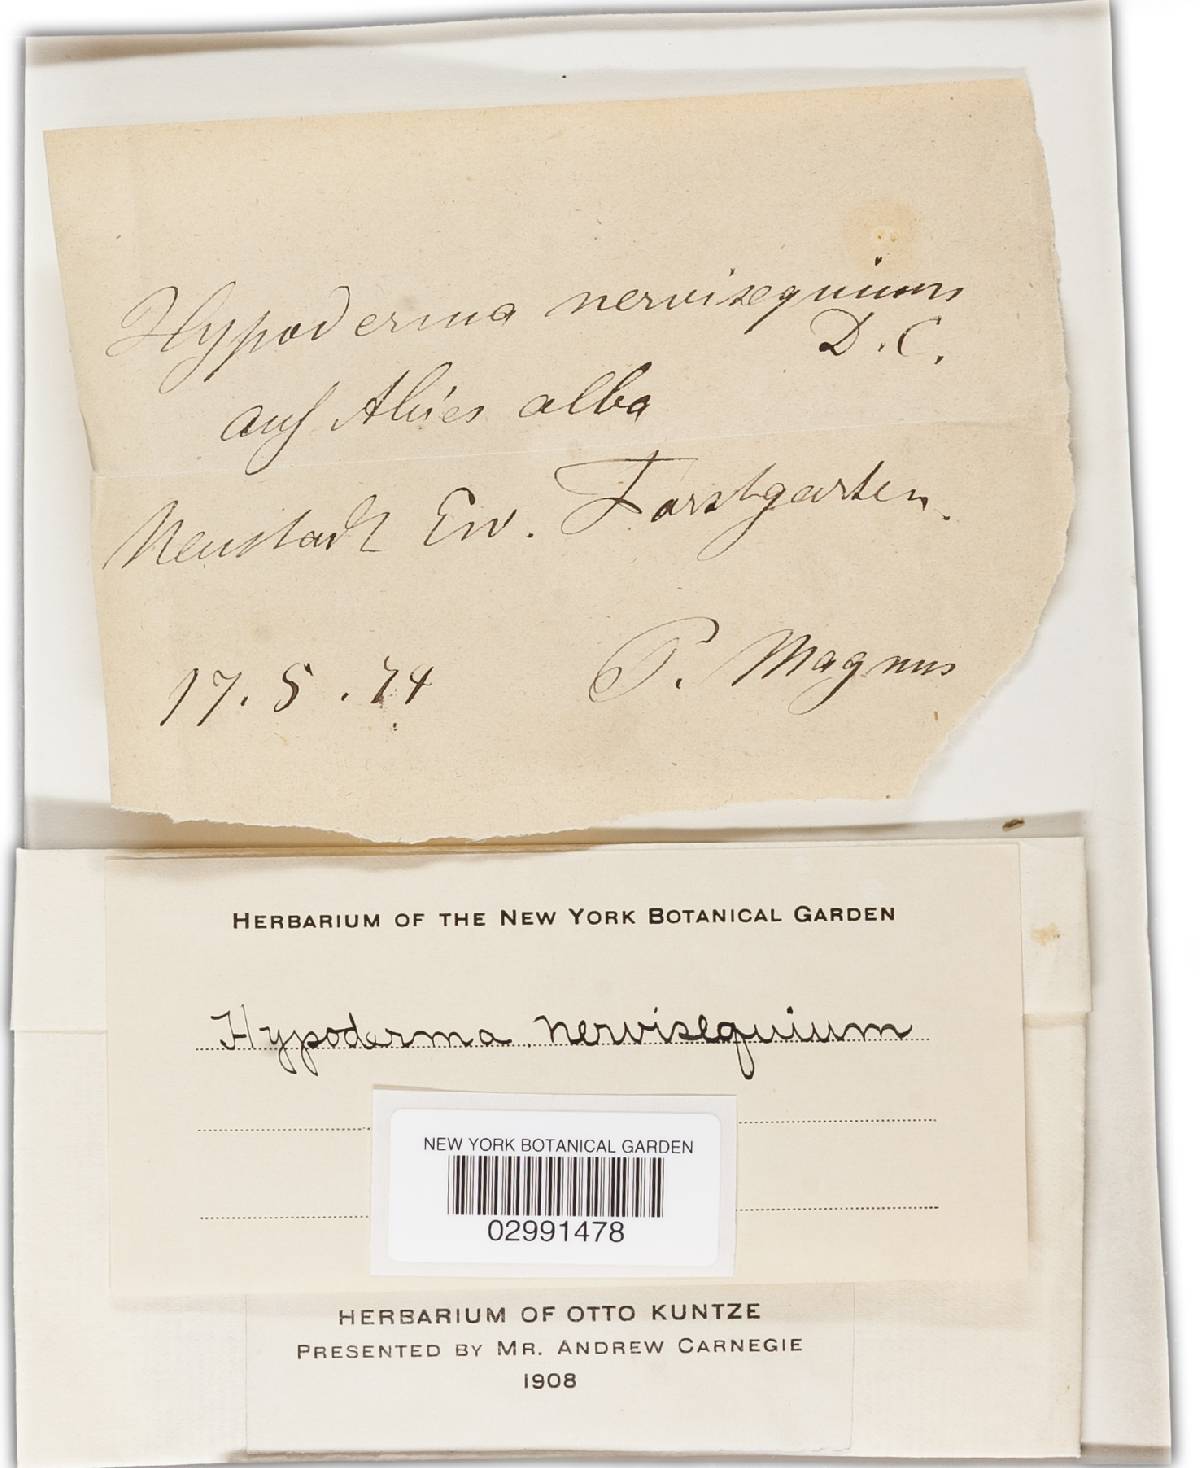 Hypoderma nervisequium
D.C.
auf Abies alba
Neustadt Ew. Forstgarten.
17.5.74 P. Magnus
HERBARIUM OF THE NEW YORK BOTANICAL GARDEN
Hypoderma nervisequium
NEW YORK BOTANICAL GARDEN
02991478
HERBARIUM OF OTTO KUNTZE
PRESENTED BY MR. ANDREW CARNEGIE
1908